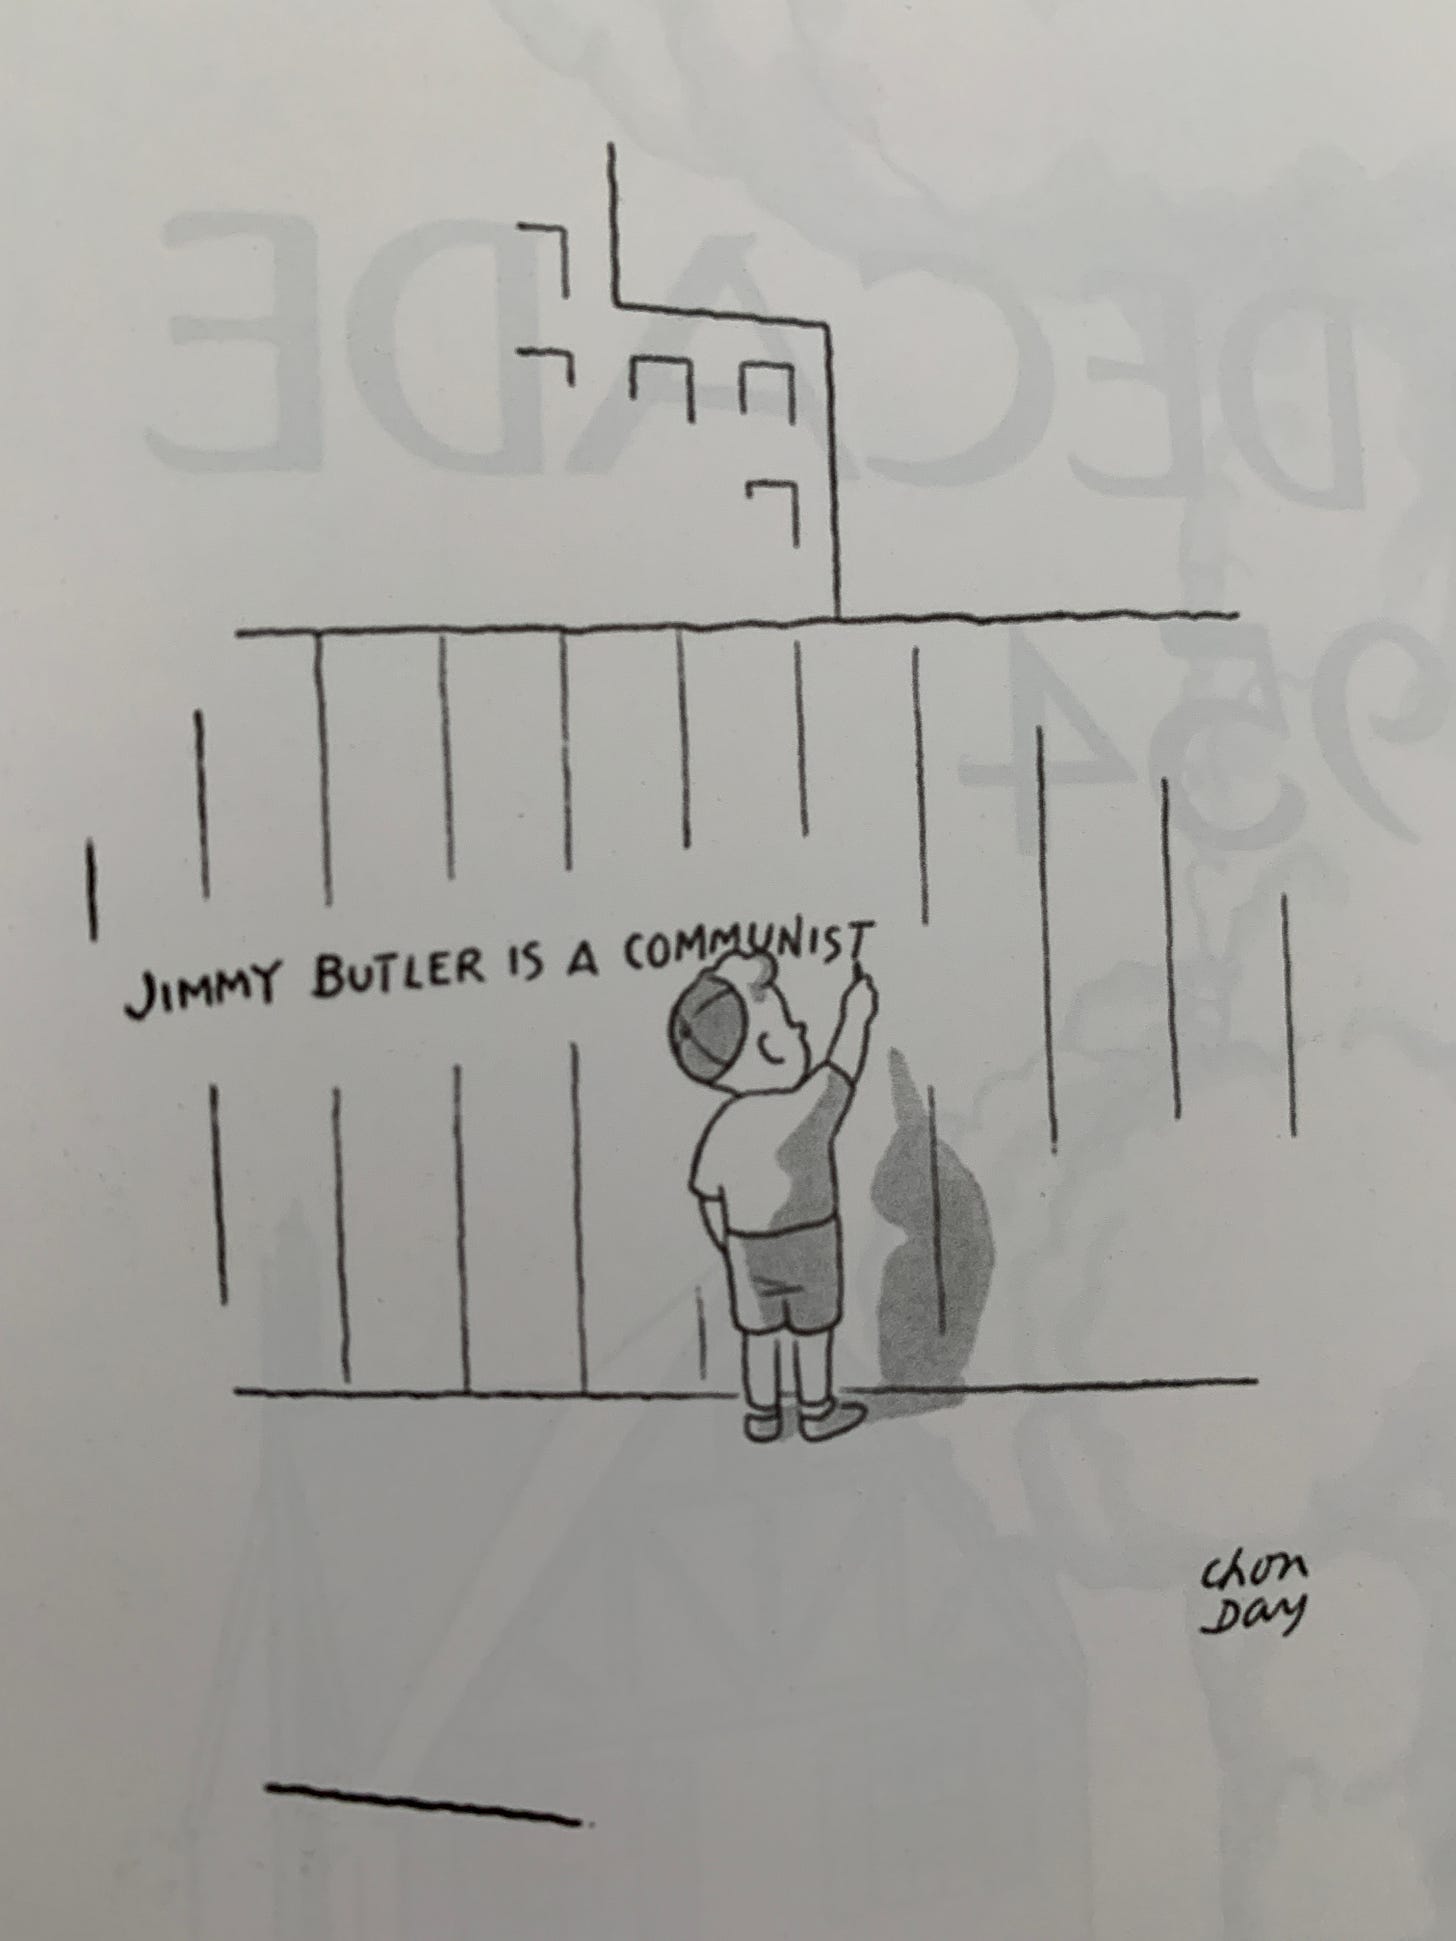 JIMMY BUTLER IS A COMMUNIST
Chon
Day